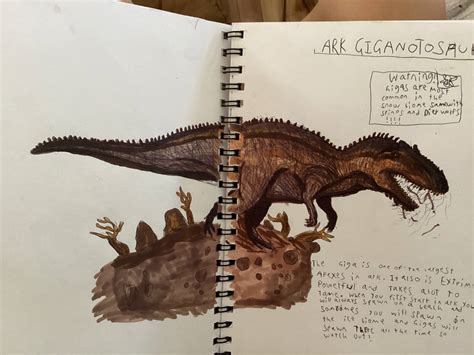 ARK GIGANOTOSAU
Warning!
Gigas are most
common in the
snow biome same with
spinos and Dier wolfs
!!!!
The Giga is one of the largest
Apexes in ark. It Also is Extrem
Powerful and takes alot to
tame. when you first start in ark you
will always spawn on a beach and
somtimes you will spawn on
the ice biome and Gigas will
spawn there all the time so
watch out!